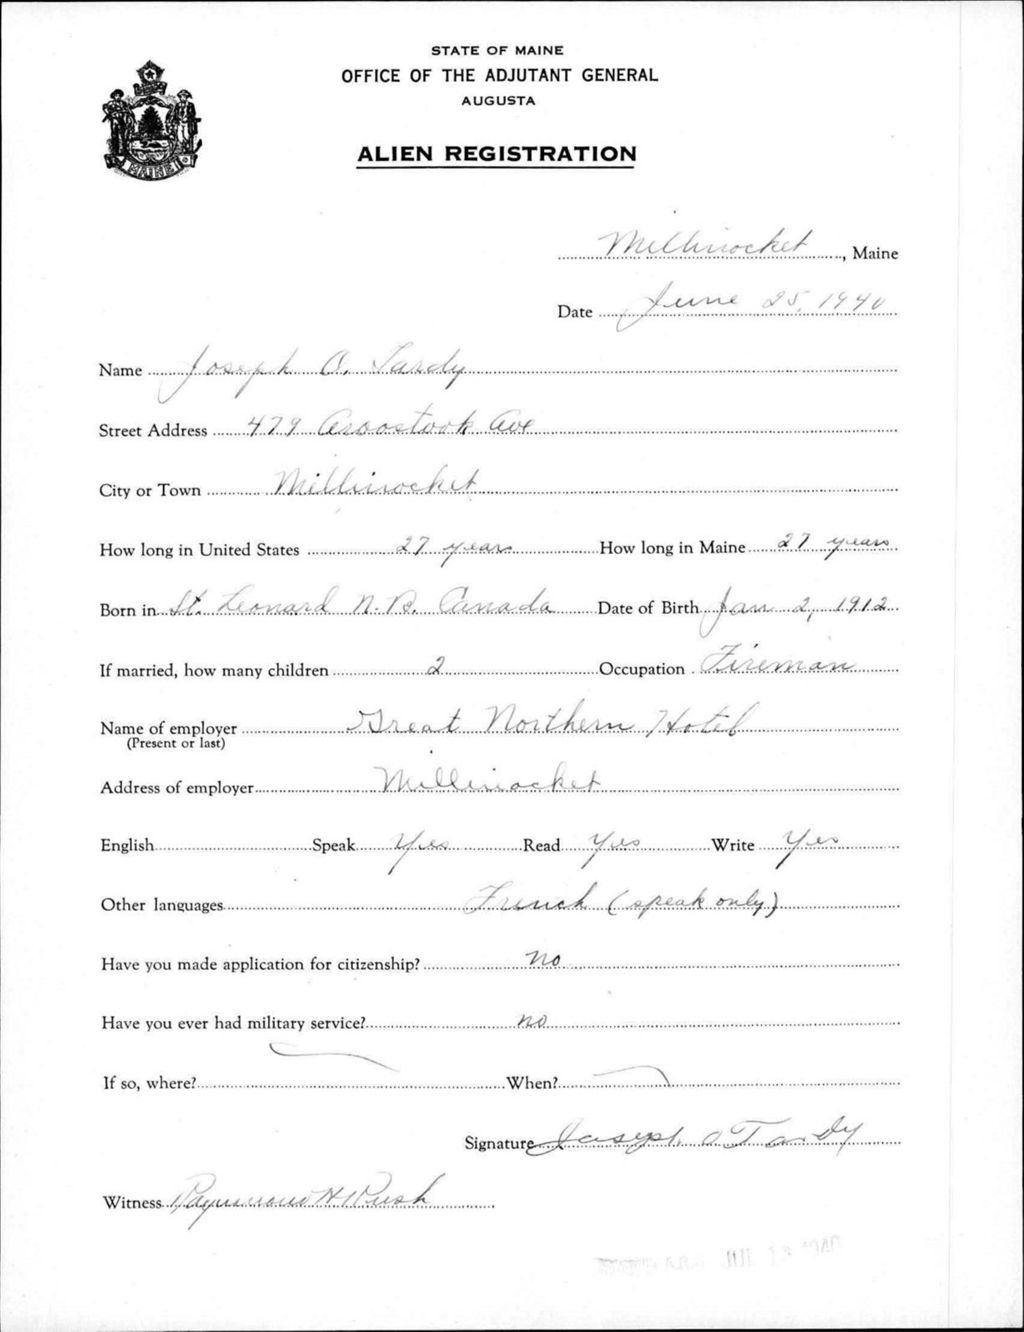 STATE OF MAINE
OFFICE OF THE ADJUTANT GENERAL
AUGUSTA
ALIEN REGISTRATION
MAINE
Millinocket, Maine
Date June 25, 1940
Name Joseph O. Tardy
Street Address 479 Aroostook Ave
City or Town Millinocket
How long in United States 27 years How long in Maine 27 years
Born in St. Leonard N.B. Canada Date of Birth Jan 2, 1912
If married, how many children 2 Occupation Fireman
Name of employer Great Northern Hotel
(Present or last)
Address of employer Millinocket
English Speak Yes Read Yes Write Yes
Other languages French (speak only)
Have you made application for citizenship? No
Have you ever had military service? no
If so, where? When?
Signature Joseph O Tardy
Witness Raymond H Rush